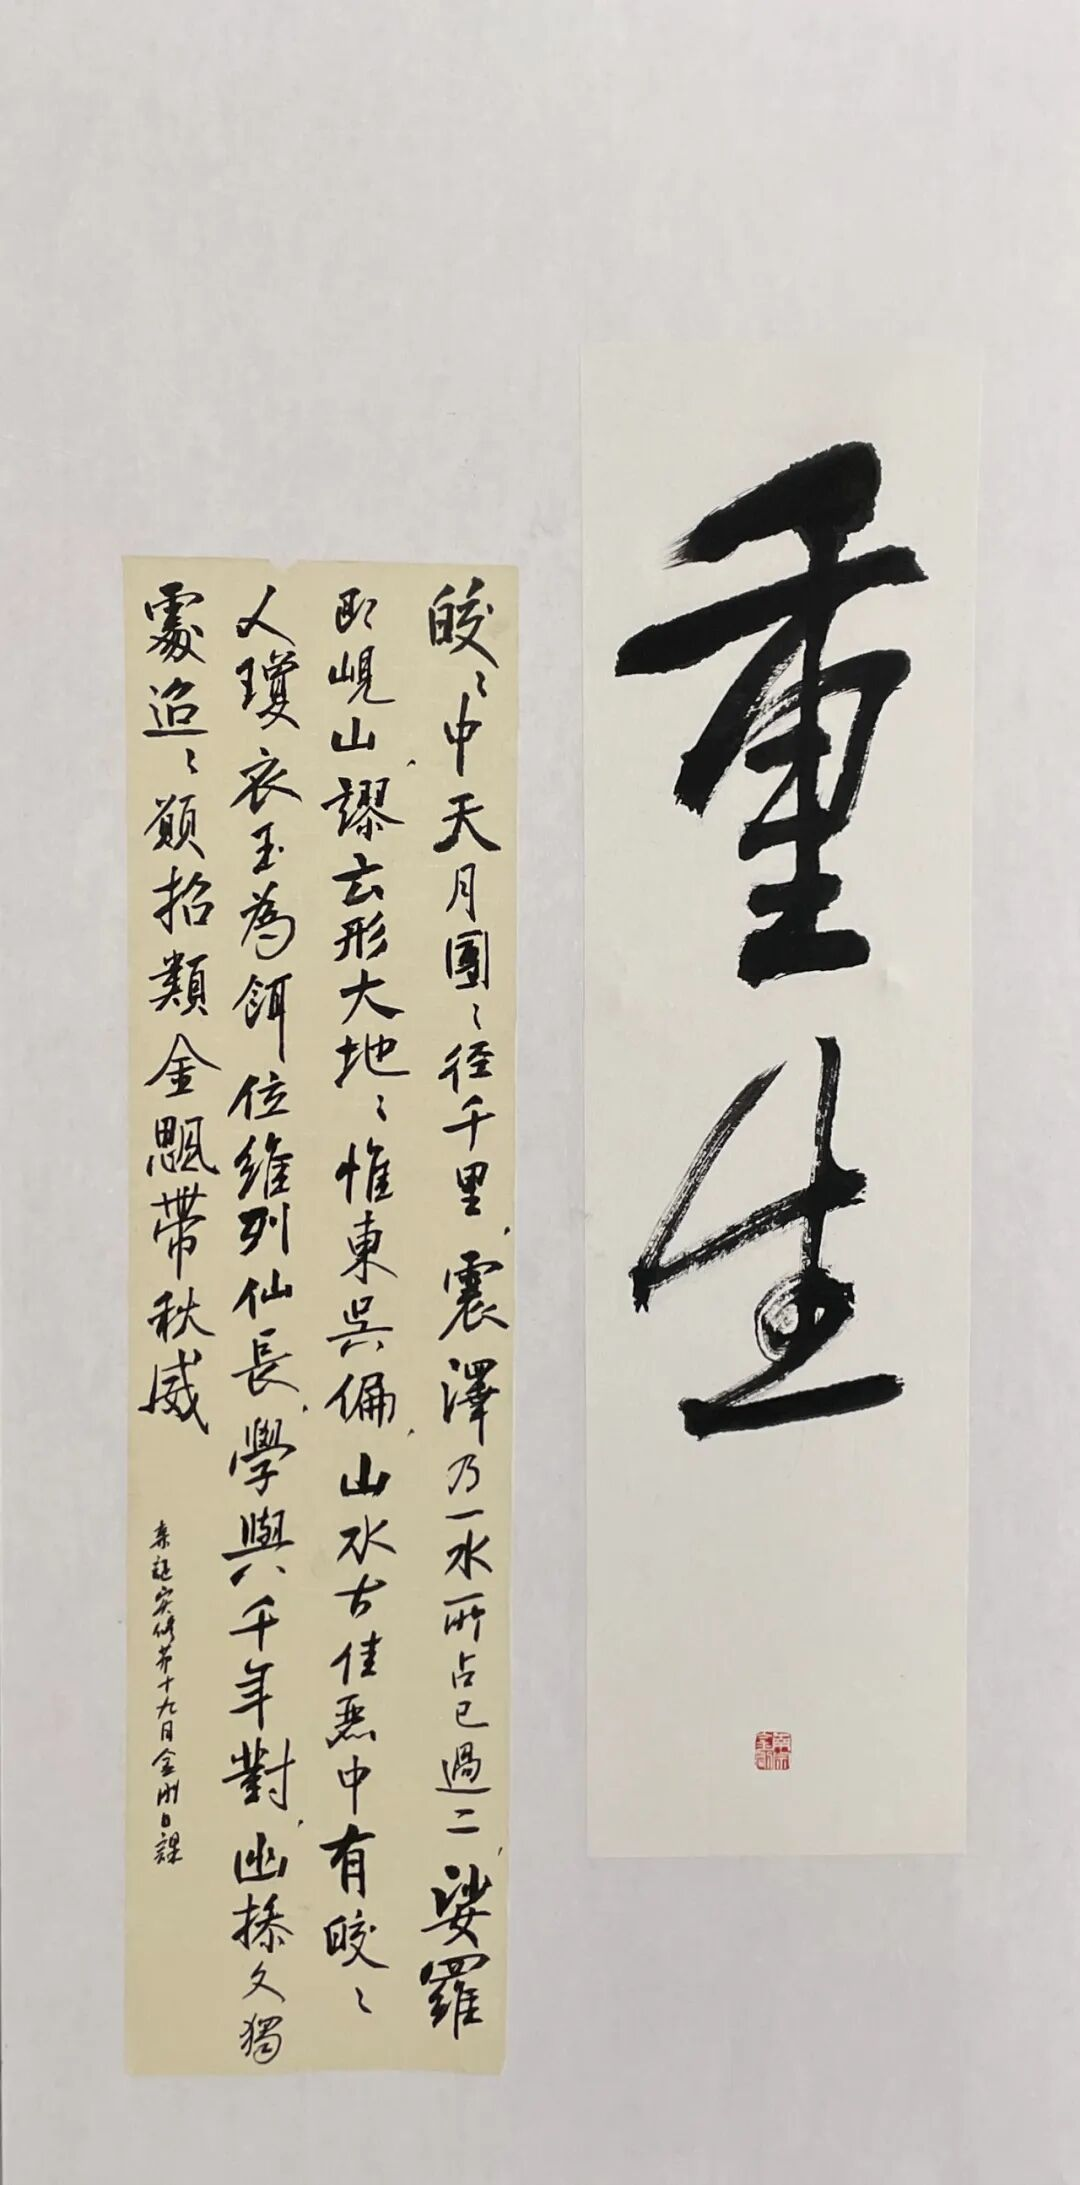 重生
皎〻中天月團〻径千里震澤乃一水所占已過二娑羅
即峴山謬云形大地〻惟東吳偏山水古佳丽中有皎〻
人瓊衣玉為餌位維列仙長學與千年對幽操久獨
處迢〻願招類金飔帶秋威